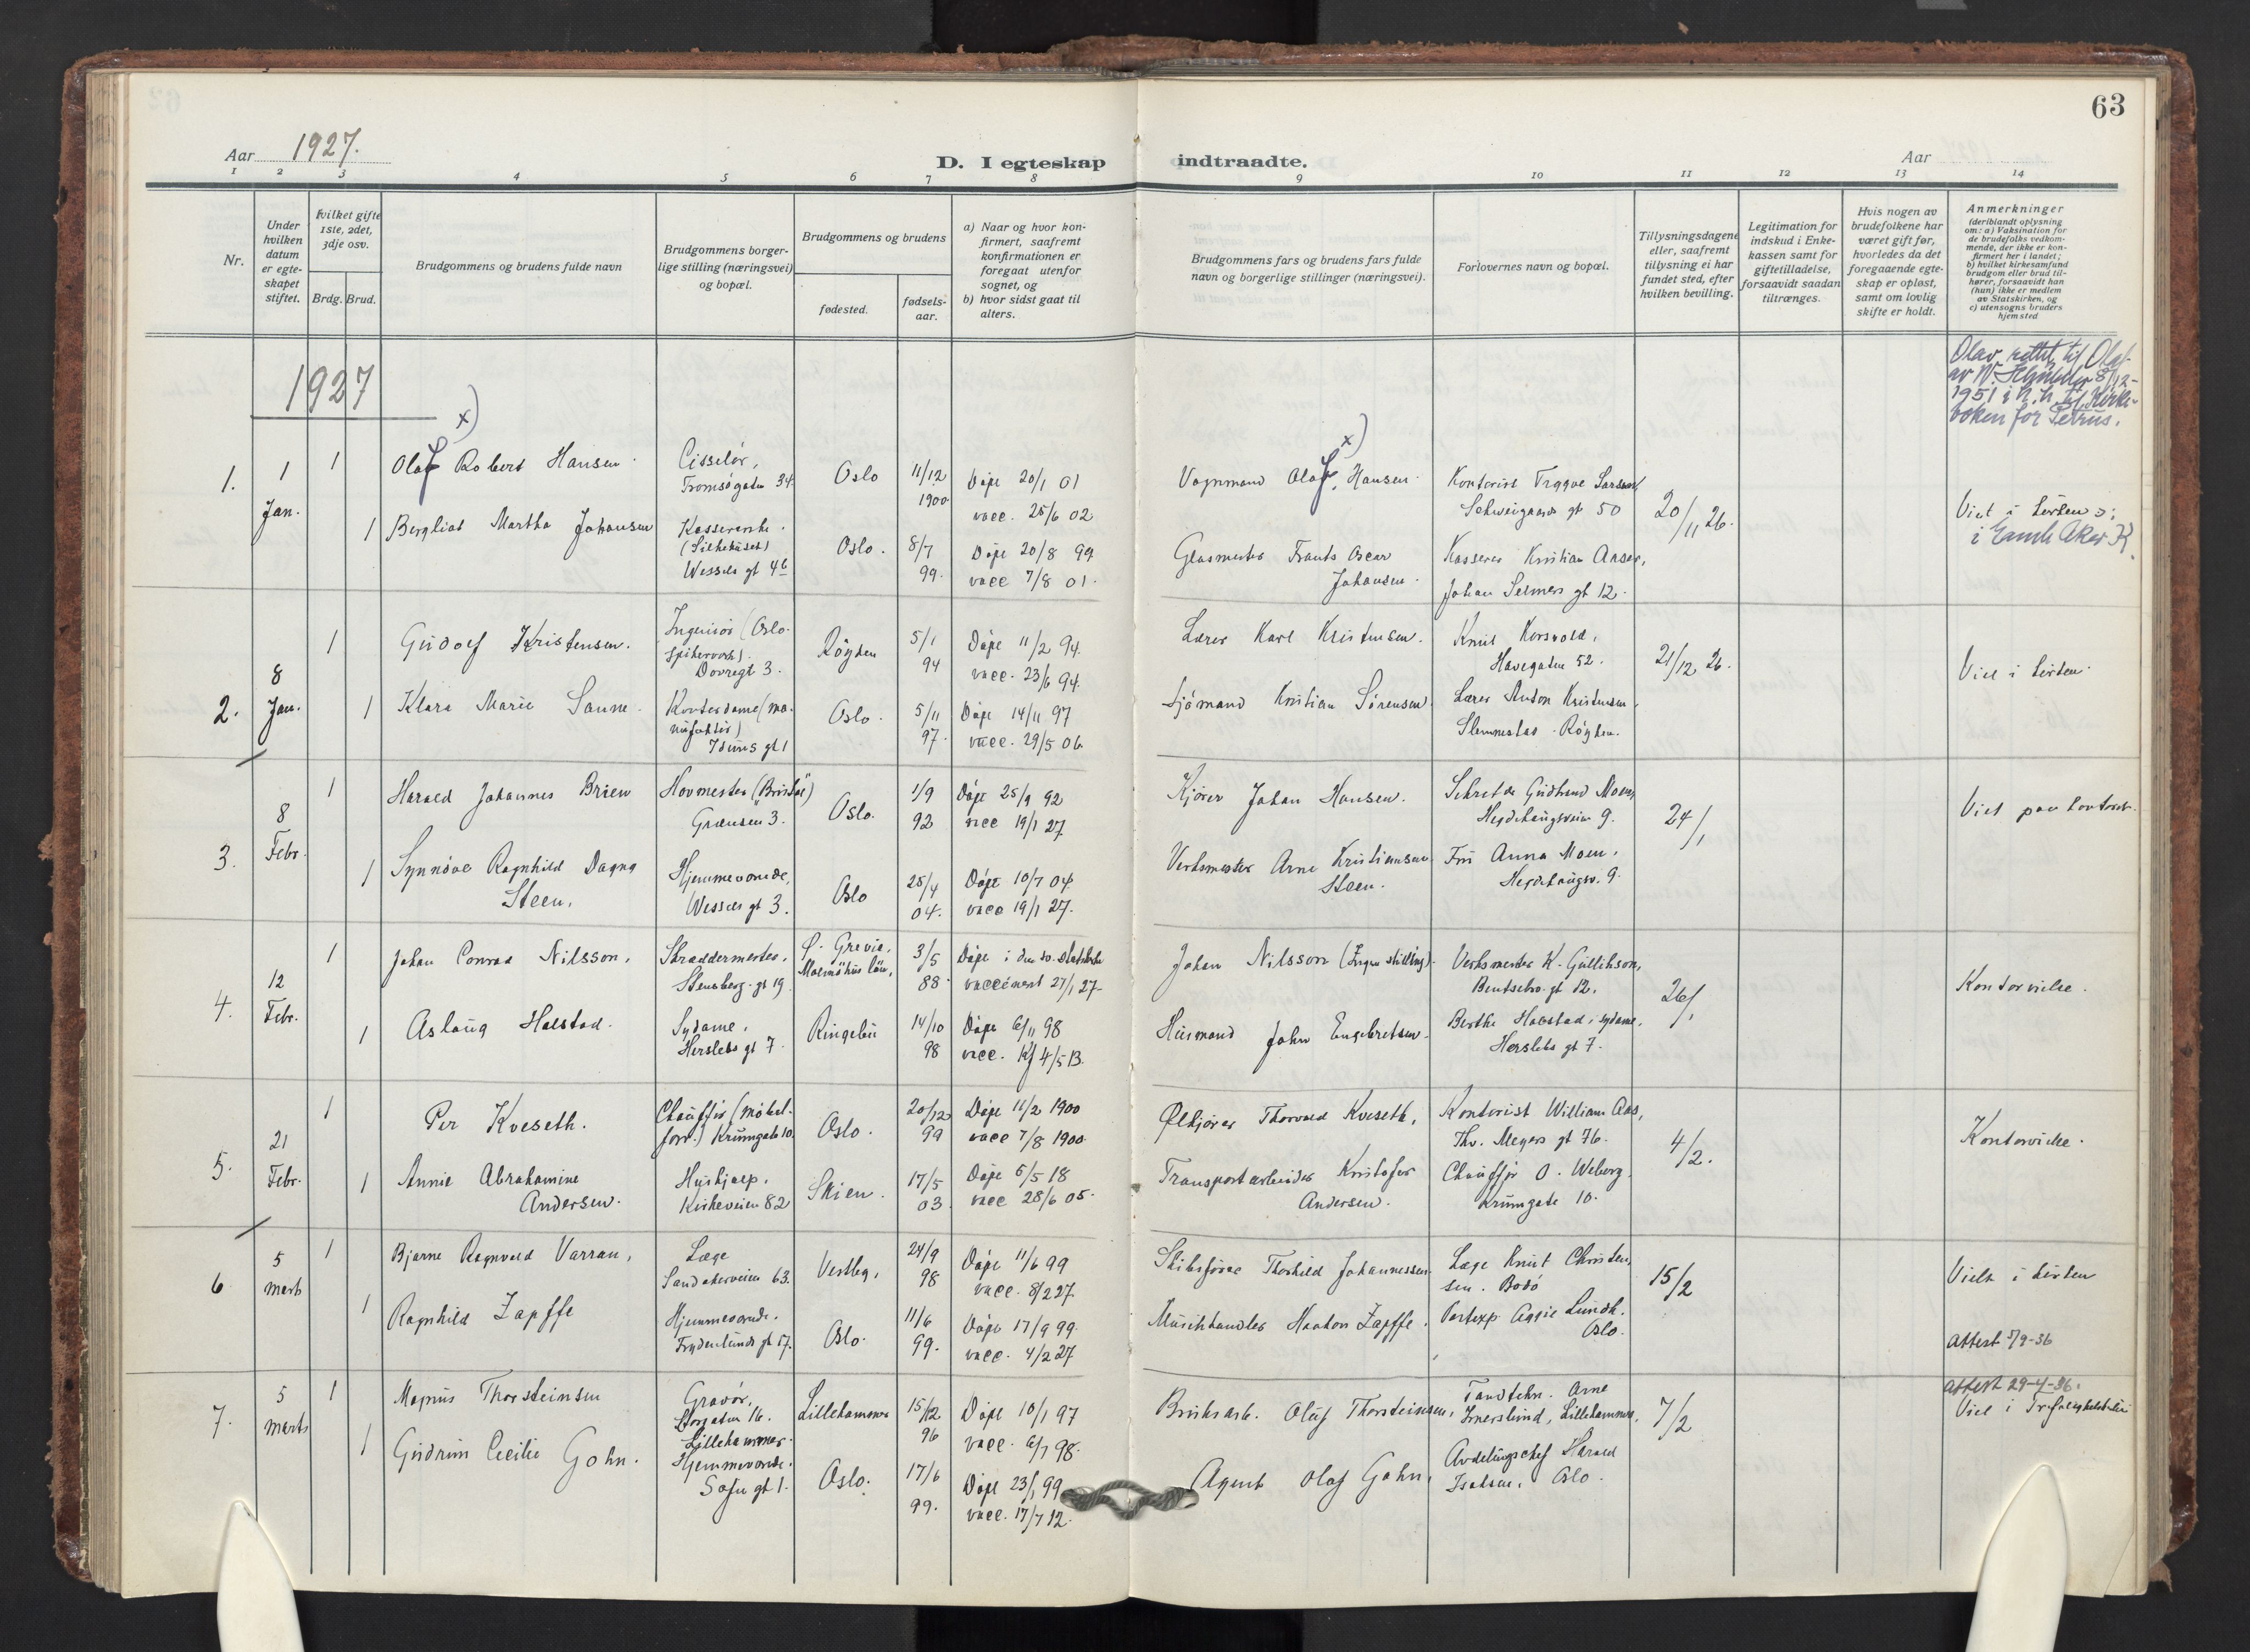 63
Aar 1927.
D. I egteskap indtraadte.
Aar
1 2 3 4 5 6 7 8 9 10 11 12 13 14
Nr.
Under
hvilken
datum
er egte-
skapet
stiftet.
Hvilket gifte
1ste, 2det,
3dje osv.
Brdg. Brud.
Brudgommens og brudens fulde navn
Brudgommens borger-
lige stilling (næringsvei)
og bopæl.
Brudgommens og brudens
fødested.
fødsels-
aar.
a) Naar og hvor kon-
firmert, saafremt
konfirmationen er
foregaat utenfor
sognet, og
b) hvor sidst gaat til
alters.
Brudgommens fars og brudens fars fulde
navn og borgerlige stillinger (næringsvei).
Forlovernes navn og bopæl.
Tillysningsdagene
eller, saafremt
tillysning ei har
fundet sted, efter
hvilken bevilling.
Legitimation for
indskud i Enke-
kassen samt for
giftetilladelse,
forsaavidt saadan
tiltrænges.
Hvis nogen av
brudefolkene har
været gift før,
hvorledes da det
foregaaende egte-
skap er opløst,
samt om lovlig
skifte er holdt.
Anmerkninger
(deriblandt oplysning
om: a) Vaksination for
de brudefolks vedkom-
mende, der ikke er kon-
firmert her i landet;
b) hvilket kirkesamfund
brudgom eller brud til-
hører, forsaavidt han
(hun) ikke er medlem
av Statskirken, og
c) utensogns bruders
hjemsted
1927
Olav rettet til Olaf
1951 i h.h. til Kirke-
boken for Petrus.
x)
x)
1.
1
Jan.
1
Olaf Robert Hansen.
Ciselør,
Tromsøgaten 34.
Oslo
11/12
1900
Døpt 20/1 01
vacc. 25/6 02
Vognmand Olaf Hansen.
Kontorist Trygve Larsen,
Schweigaards gt 50
20/11 26.
Viet i kirken o:
i Gamle Aker K.
1
Bergliot Martha Johansen
Kassererske.
Wessels gt 4b
Oslo.
8/7
99.
Døpt 20/8 99
vacc 7/8 01.
Glasmester Frants Oscar
Johansen.
Kasserer Kristian Aaser,
Johan Selmers gt 12.
2.
8
Jan.
1
Gudolf Kristensen.
Ingeniør (Oslo
spikerverk).
Dovregt 3.
Røyken
5/1
94
Døpt 11/2 94.
vacc. 23/6 94.
Lærer Karl Kristensen.
Knut Korsvold,
Havegaten 52.
21/12 26.
Viet i kirken.
1
Klara Marie Sanne.
Kontordame (ma-
nufaktur)
Iduns gt 1
Oslo.
5/11
97.
Døpt 14/11 97
vacc. 29/5 06
Sjømand Kristian Sørensen
Lærer Anton Kristensen,
Slemmestad. Røyken.
3.
8
Febr.
1
Harald Johannes Brien
Hovmester (Bristol)
Grænsen 3.
Oslo.
1/9
92
Døpt 25/9 92
vacc 19/1 27
Kjører Johan Hansen.
Gudbrand Moen,
Hegdehaugsveien 9.
24/1
Viet paa kontoret.
1
Synnøve Ragnhild Dagny
Steen.
Hjemmeværende,
Wessels gt 3.
Oslo
25/4
04.
Døpt 10/7 04.
vacc 19/1 27.
Verksmester Arne Kristiansen
Steen.
Fru Anna Moen,
Hegdehaugsv. 9.
4.
12
Febr.
1
Johan Conrad Nilsson,
Skræddermester,
Stensberg. gt 19.
S. Grevie,
Malmöhus län,
3/5
88
Døpt i den sv. statskirke
vaccinert 27/1 27.
Johan Nilsson (Ingen stilling).
Verksmester K. Gulliksen,
Bentsebro. gt 12.
26/1
Kontorvielse.
1
Aslaug Halstad.
Sydame,
Herslebs gt 7.
Ringebu
14/10
98
Døpt 6/11 98
vacc. Kf 4/5 13.
Husmand John Engebretsen.
Berthe Halstad, sydame,
Herslebs gt 7.
5.
21
Febr.
1
Per Kveseth.
Chauffør (møbel-
forr.) Krumgate 10.
Oslo.
20/12
99
Døpt 11/2 1900
vacc 7/8 1900.
Ølkjører Thorvald Kveseth,
Kontorist William Aas,
Thv. Meyers gt 76.
4/2.
Kontorvielse.
1
Annie Abrahamine
Andersen.
Hushjælp,
Kirkeveien 82
Skien.
17/5
03.
Døpt 5/5 18
vacc 28/6 05.
Transportarbeider Kristofer
Andersen.
Chauffør O. Weberg,
Krumgate 10.
6
5
Marts
1
Bjarne Ragnvald Varran,
Læge
Sandakerveien 63.
Vestby,
24/9
98
Døpt 11/6 99
vacc. 8/2 27.
Skibsfører Thorkild Johannessen
Læge Knut Christen-
sen. Bodø
15/2
Viet i kirken
1
Ragnhild Zapffe
Hjemmeværende.
Frydenlunds gt 17.
Oslo.
11/6
99.
Døpt 17/9 99.
vacc. 4/2 27
Musikhandler Haakon Zapffe.
Postexp. Aggie Lundh.
Oslo.
Attest 5/9-36
7.
5
Marts
1
Magnus Thorsteinsen
Gravør,
Storgaten 16.
Lillehammer.
Lillehammer
15/12
96
Døpt 10/1 97
vacc. 6/7 98.
Bruksarb. Oluf Thorsteinsen,
Tandtekn. Arne
Lillehammer,
7/2
Attest 29-4-36.
Viet i
1
Gudrun Cecilie Gohn.
Hjemmeværende.
Sofie gt 1.
Oslo.
17/6
99.
Døpt 23/1 99
vacc. 17/7 12.
Agent Olaf Gohn,
Avdelingschef Harald
Isaksen, Oslo.